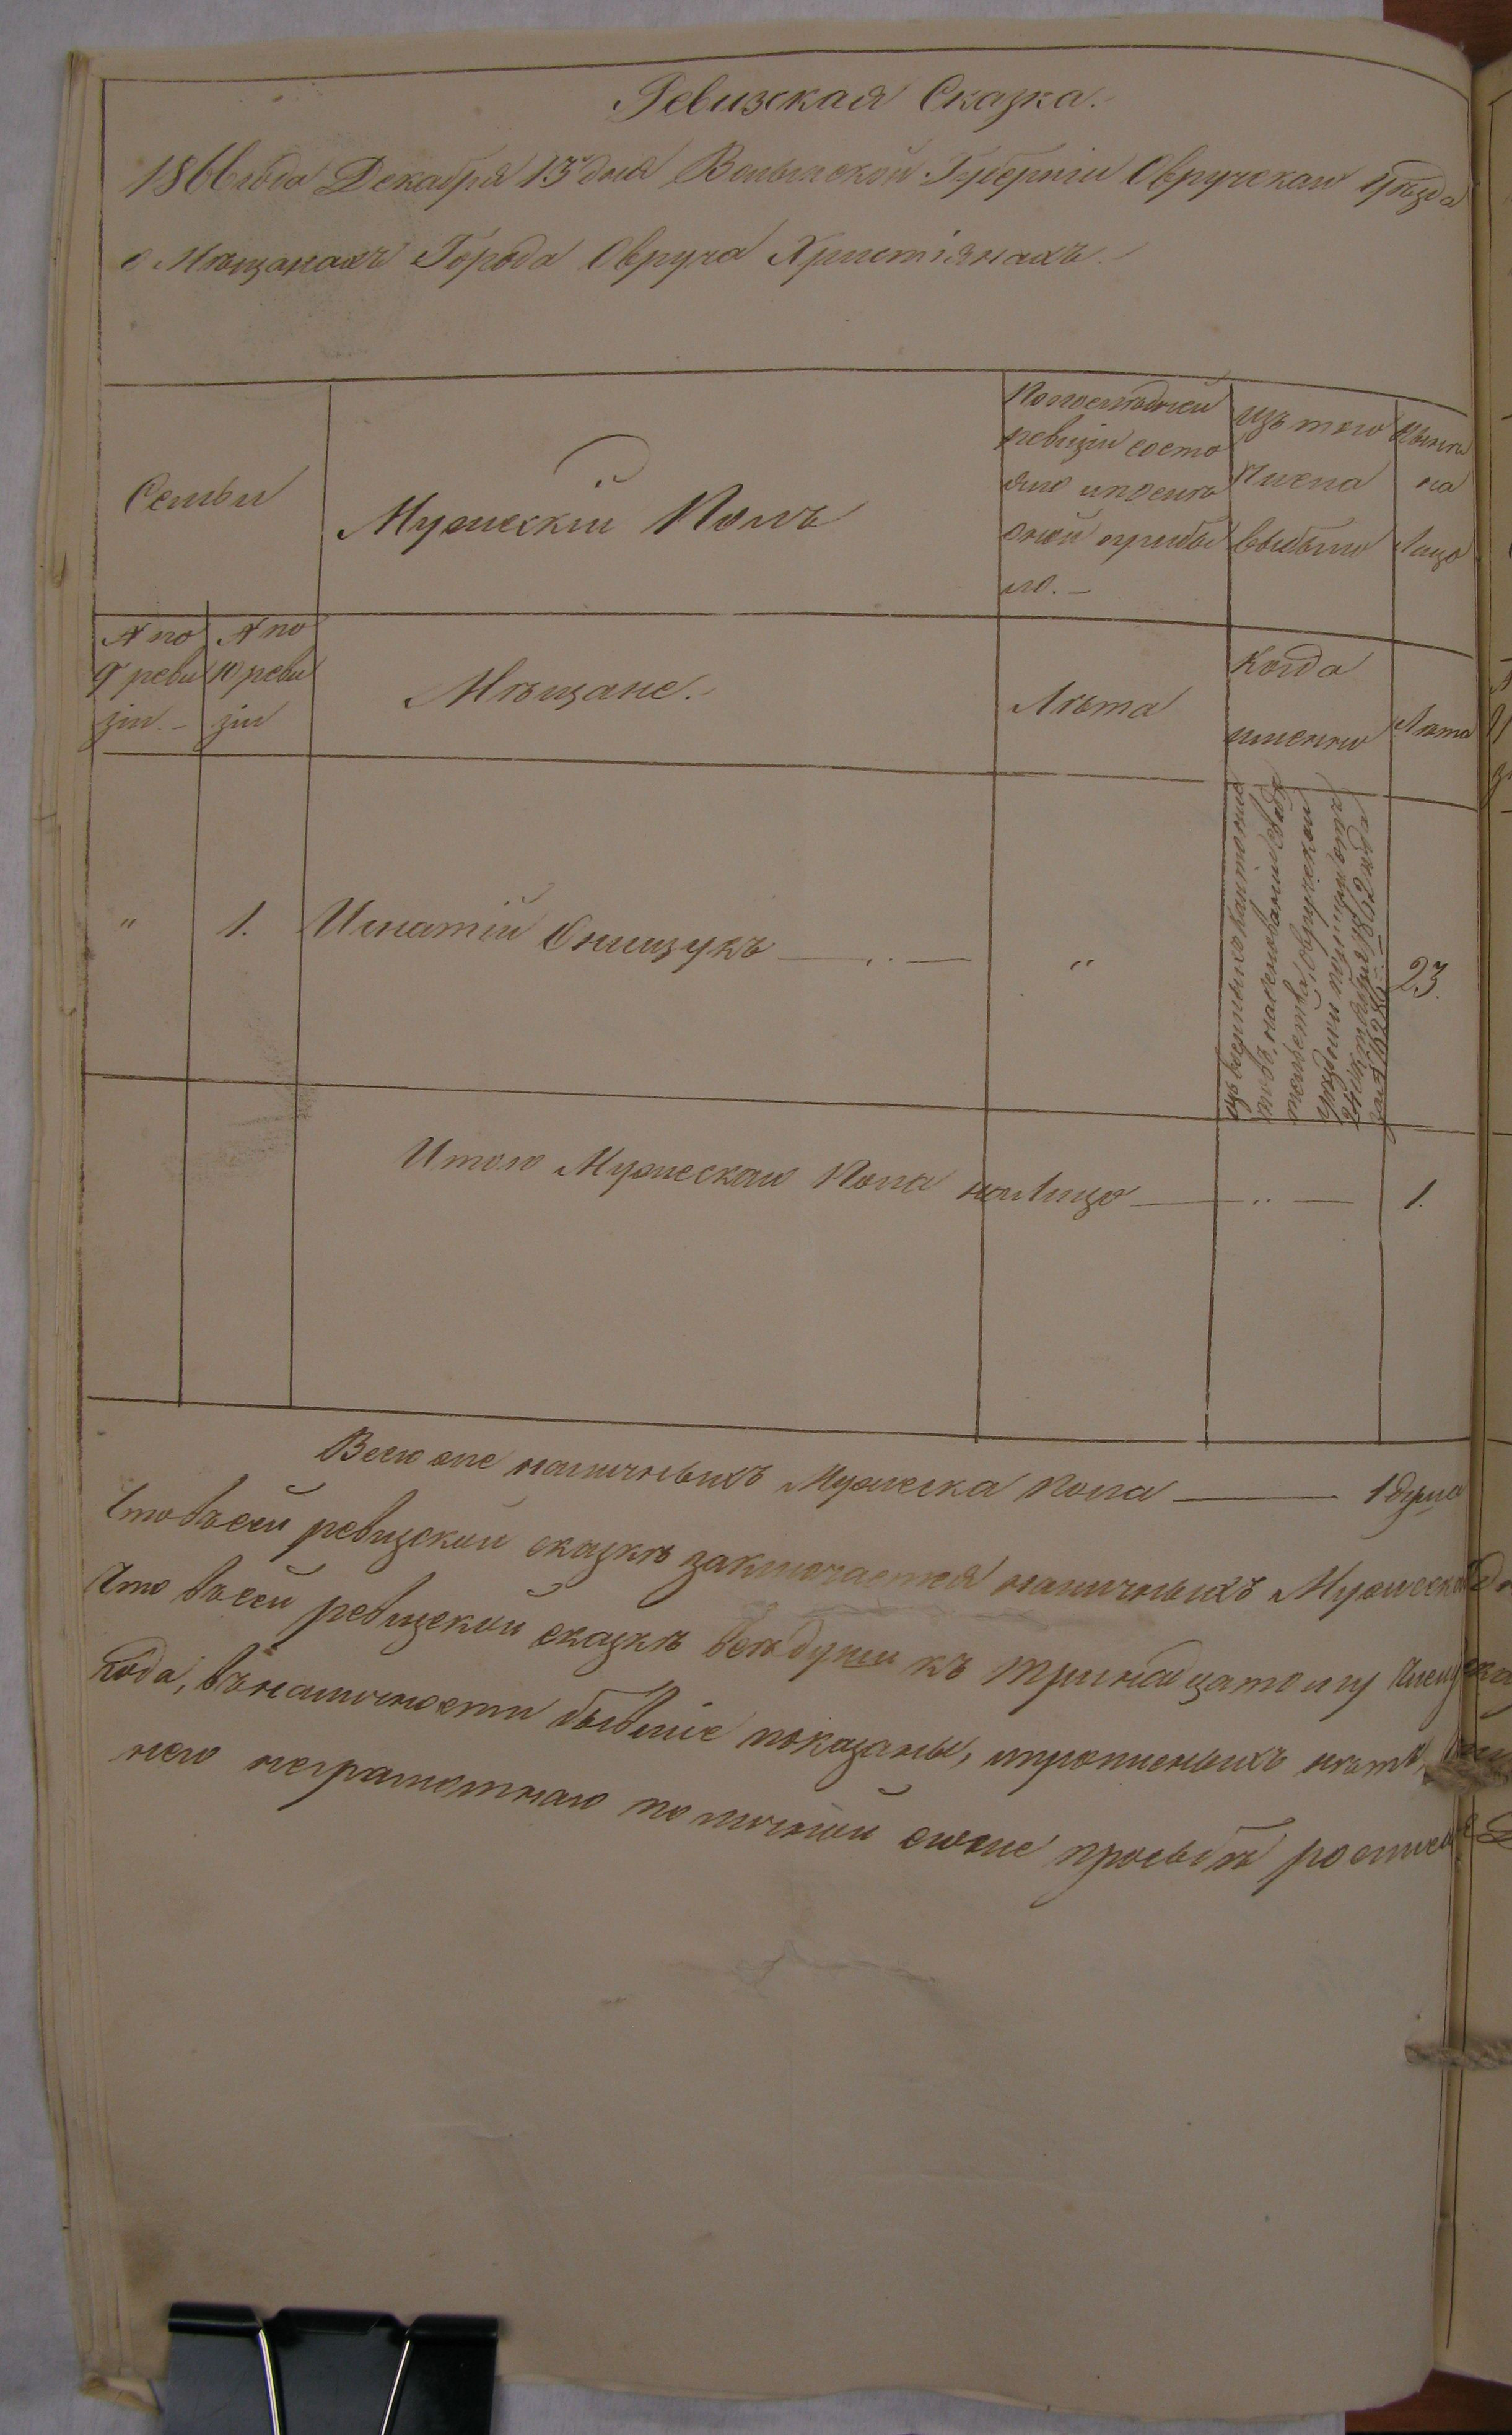 Ревизская Сказка.
1866 года Декабря 13 дня Волынской Губерніи Овручскаго Уѣзда
о Мѣщанахъ Города Овруча Христіянахъ.
Семьи
Мужескій Полъ
По последней
ревизіи состо
яло и после
оной прибы
ло.
Изъ того
числа
выбыло
Нынѣ
на
Лицо
№ по
9 реви
зіи
№ по
10 реви
зіи
Мѣщане.
Лѣта
Когда
именно
Лѣта
"
1.
Игнатій Онищукъ
"
изъ
на основаніи свидѣ
тельства Овручской
уѣздной полиціи отъ
24 1862 года
за №
23.
Итого Мужескаго Пола на Лицо
1.
Всего же наличныхъ Мужеска пола 1 душа
Что въ сей ревизской сказкѣ заключается наличныхъ Мужеска
Что въ сей ревизской сказкѣ всѣ души къ тринадцатому числу
года, въ наличности бывшіе показаны, и прописныхъ нѣтъ,
него неграмотнаго по личной его же просьбѣ